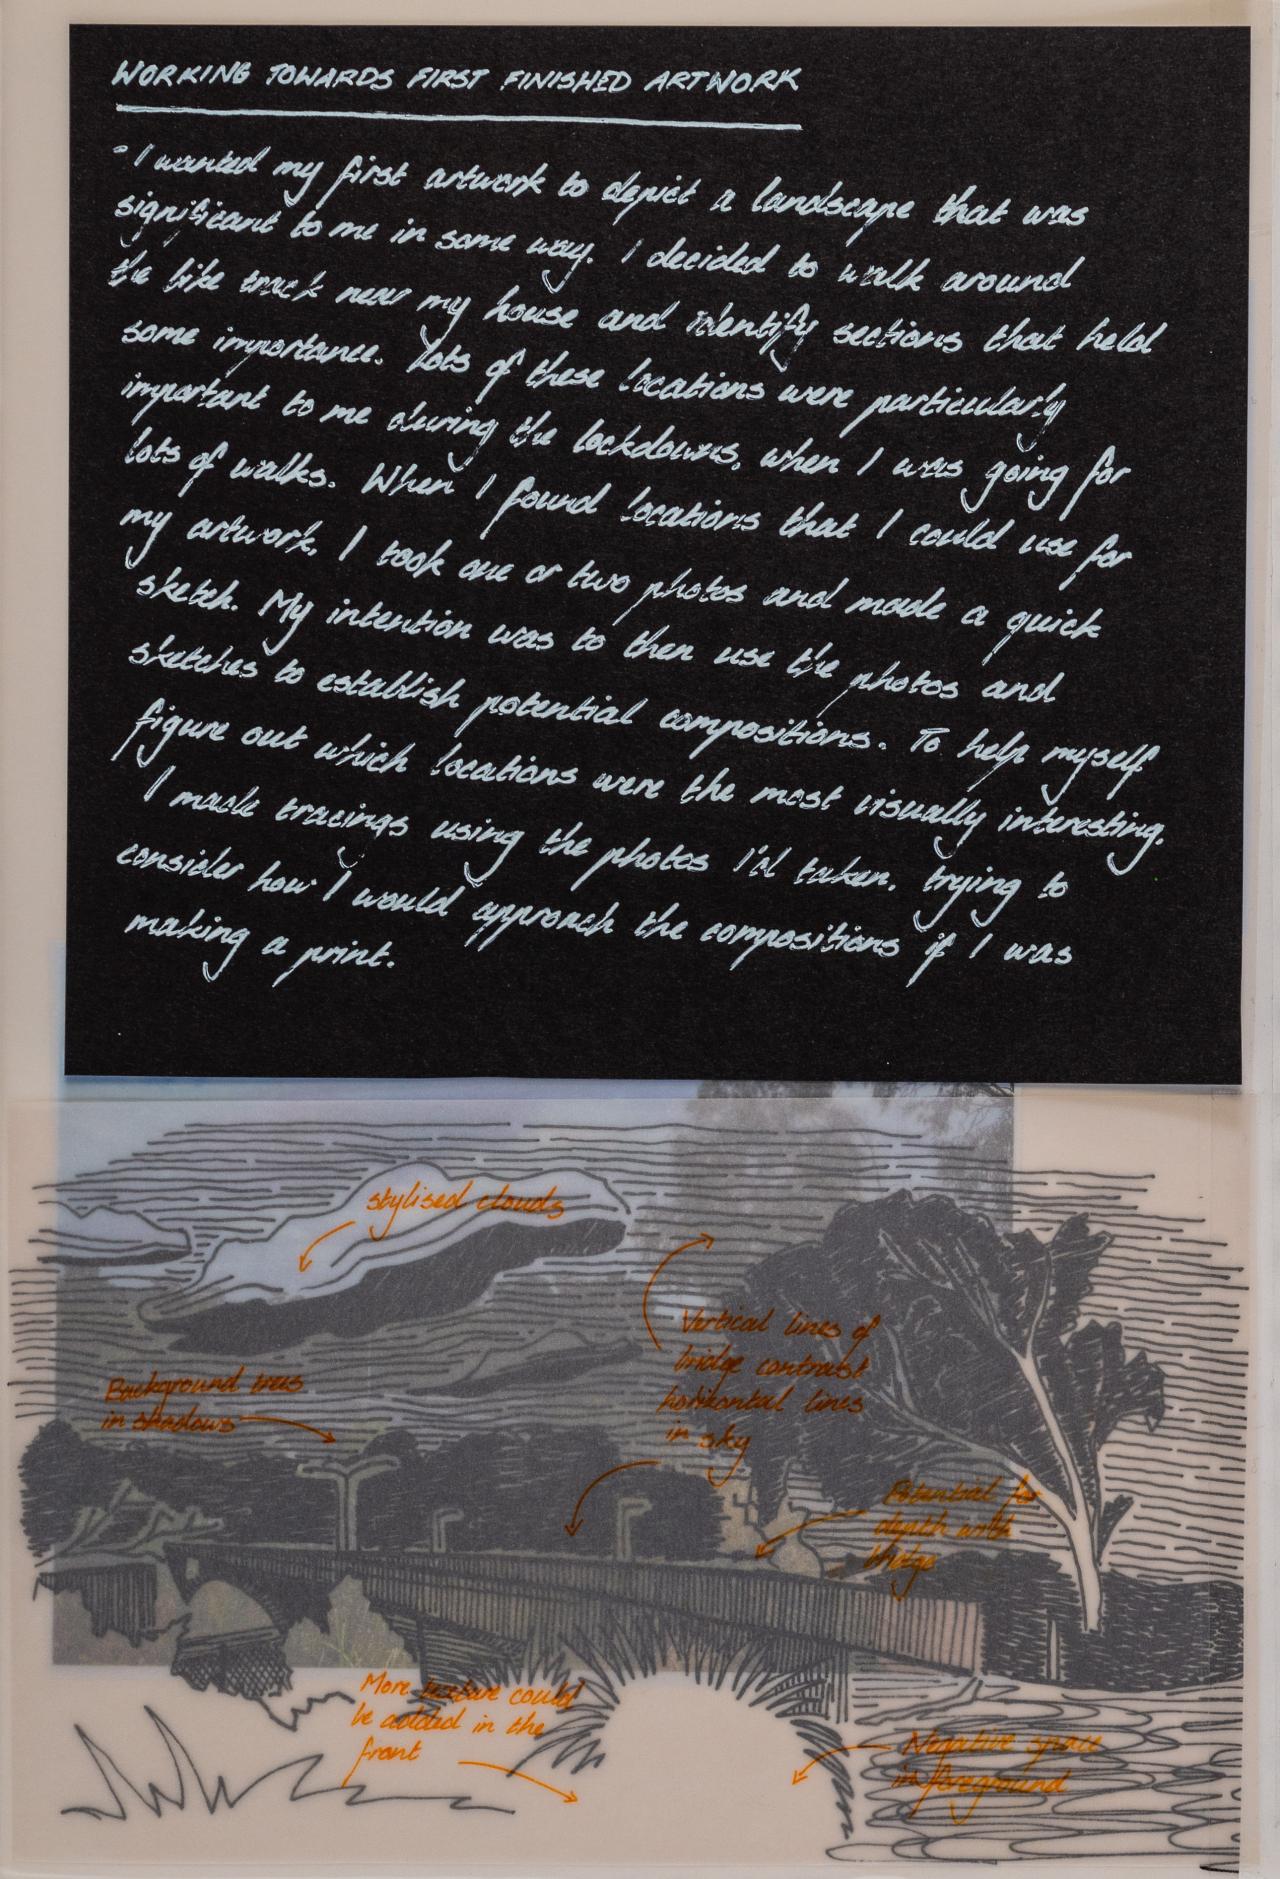 WORKING TOWARDS FIRST FINISHED ARTWORK
- I wanted my first artwork to depict a landscape that was
significant to me in some way. I decided to walk around
the bike track near my house and identify sections that held
some importance. Lots of these locations were particularly
important to me during the lockdowns, when I was going for
lots of walks. When I found locations that I could use for
my artwork, I took one or two photos and made a quick
sketch. My intention was to then use the photos and
sketches to establish potential compositions. To help myself
figure out which locations were the most visually interesting,
I made tracings using the photos I'd taken, trying to
consider how I would approach the compositions if I was
making a print.
stylised clouds
Vertical lines of
bridge contrast
horizontal lines
in sky
Background trees
in shadows
Potential for
depth with
bridge
More texture could
be added in the
front
Negative space
in foreground